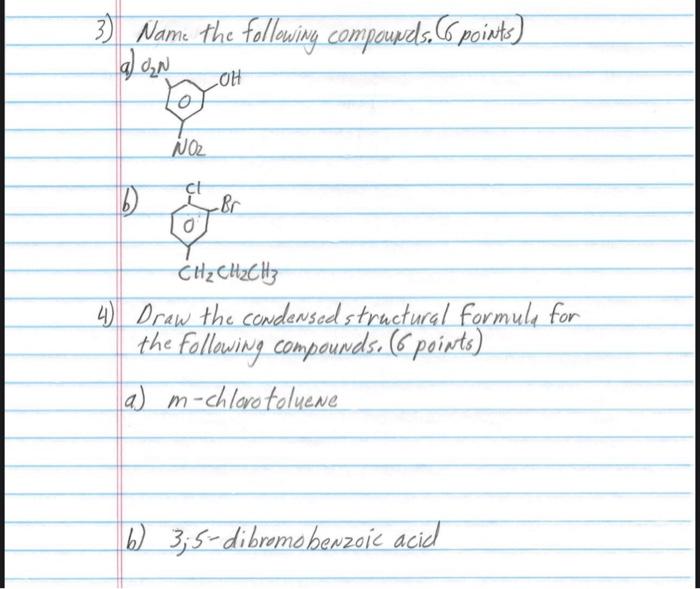 3) Name the following compounds. (6 points)
a) O2N
OH
NO2
b) Cl
Br
CH2CH2CH3
4) Draw the condensed structural formula for
the following compounds. (6 points)
a) m-chlorotoluene
b) 3,5-dibromobenzoic acid